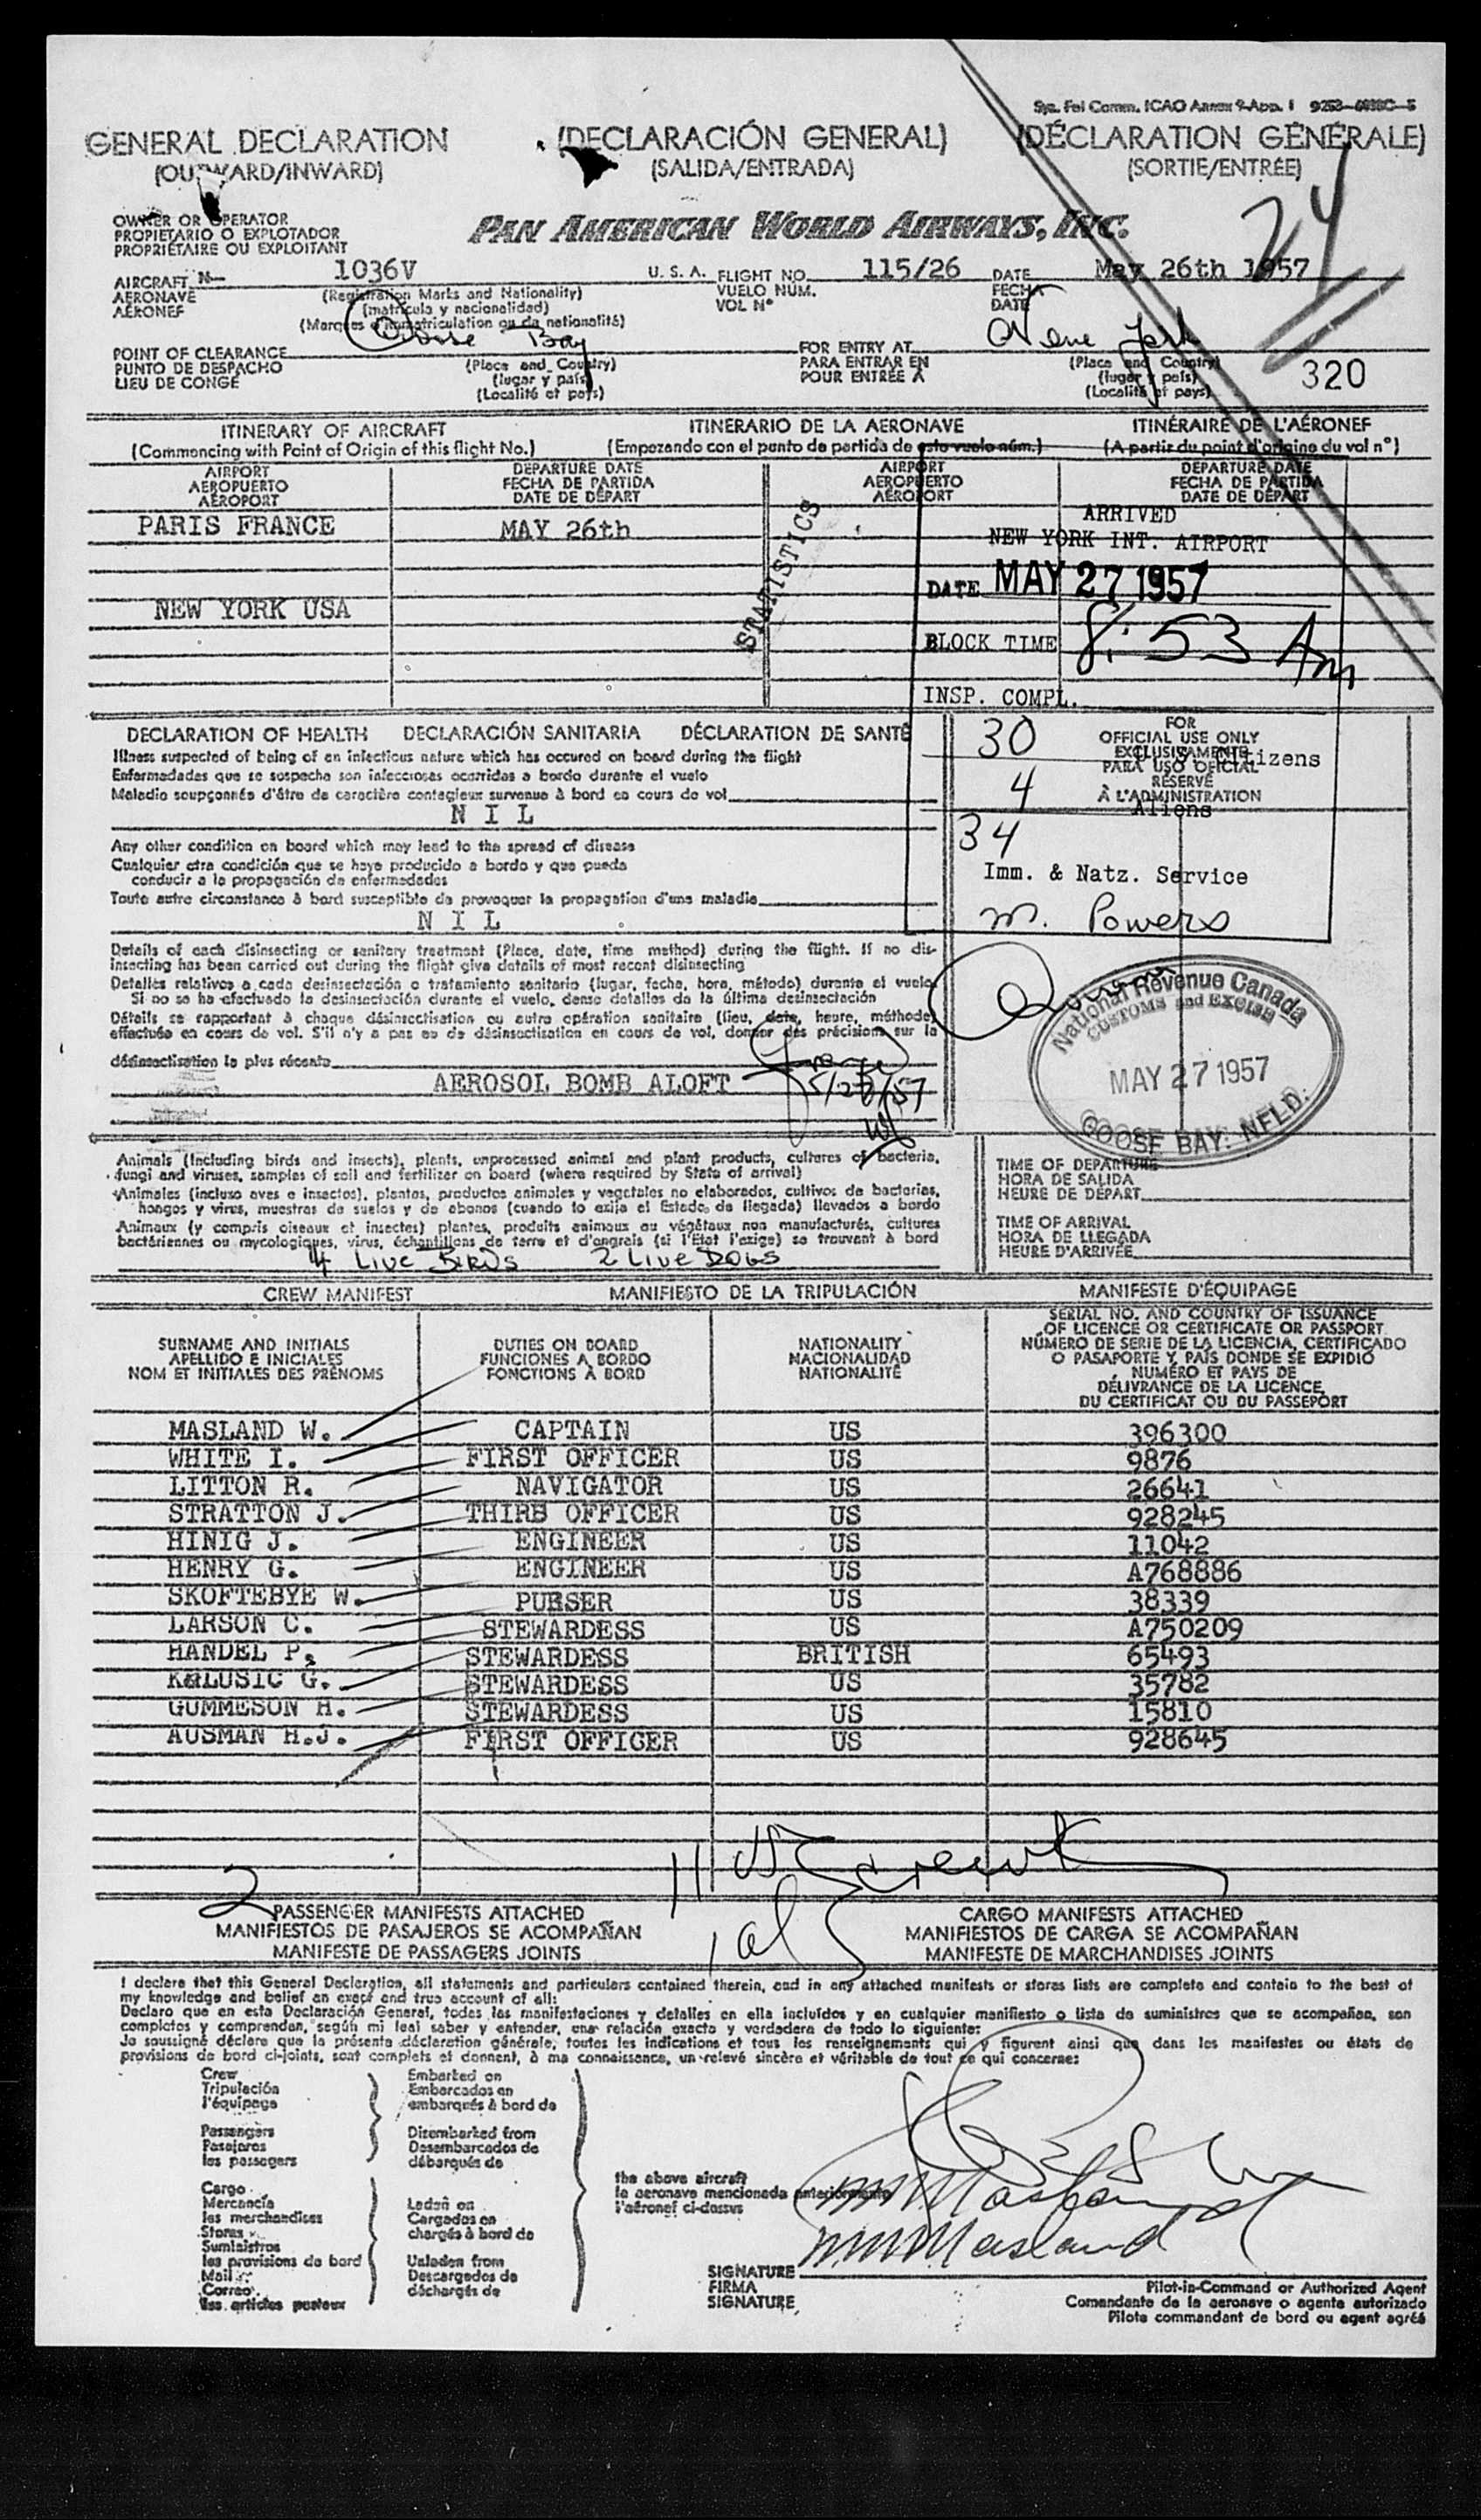 Sys. Fel Comm. ICAO Annex 9-App. 1
GENERAL DECLARATION (DECLARACIÓN GENERAL) (DÉCLARATION GÉNÉRALE)
(OUTWARD/INWARD) (SALIDA/ENTRADA) (SORTIE/ENTRÉE)
24
OWNER OR OPERATOR
PROPIETARIO O EXPLOTADOR
PROPRIÉTAIRE OU EXPLOITANT
PAN AMERICAN WORLD AIRWAYS, INC.
AIRCRAFT N- 1036V U. S. A. FLIGHT NO. 115/26 DATE May 26th 1957
AERONAVE (Registration Marks and Nationality) VUELO NÚM. FECHA
AÉRONEF (matrícula y nacionalidad) VOL N° DATE
(Marques d'immatriculation ou de nationalité)
POINT OF CLEARANCE Goose Bay FOR ENTRY AT New York
PUNTO DE DESPACHO (Place and Country) PARA ENTRAR EN (Place and Country)
LIEU DE CONGÉ (lugar y país) POUR ENTRÉE À (lugar y país) 320
(Localité et pays) (Localité et pays)
ITINERARY OF AIRCRAFT ITINERARIO DE LA AERONAVE ITINÉRAIRE DE L'AÉRONEF
(Commencing with Point of Origin of this flight No.) (Empezando con el punto de partida de este vuelo núm.) (A partir du point d'origine du vol n°)
AIRPORT DEPARTURE DATE AIRPORT DEPARTURE DATE
AEROPUERTO FECHA DE PARTIDA AEROPUERTO FECHA DE PARTIDA
AÉROPORT DATE DE DÉPART AÉROPORT DATE DE DÉPART
PARIS FRANCE MAY 26th
NEW YORK USA
STATISTICS
ARRIVED
NEW YORK INT. AIRPORT
DATE MAY 27 1957
BLOCK TIME 8:53 Am
INSP. COMPL.
DECLARATION OF HEALTH DECLARACIÓN SANITARIA DÉCLARATION DE SANTÉ
Illness suspected of being of an infectious nature which has occured on board during the flight
Enfermedades que se sospecha son infecciosas ocurridas a bordo durante el vuelo
Maladie soupçonnés d'être de caractère contagieux survenue à bord en cours de vol
N I L
Any other condition on board which may lead to the spread of disease
Cualquier otra condición que se haya producido a bordo y que pueda
conducir a la propagación de enfermedades
Toute autre circonstance à bord susceptible de provoquer la propagation d'une maladie
N I L
Details of each disinsecting or sanitary treatment (Place, date, time method) during the flight. If no dis-
insecting has been carried out during the flight give details of most recent disinsecting
Detalles relativos a cada desinsectación o tratamiento sanitario (lugar, fecha, hora, método) durante el vuelo
Si no se ha efectuado la desinsectación durante el vuelo, dense detalles de la última desinsectación
Détails se rapportant à chaque désinsectisation ou autre opération sanitaire (lieu, date, heure, méthode)
effectuée en cours de vol. S'il n'y a pas eu de désinsectisation en cours de vol, donner des précisions sur la
désinsectisation la plus récente
AEROSOL BOMB ALOFT
FOR
OFFICIAL USE ONLY
EXCLUSIVAMENTE
PARA USO OFICIAL
RÉSERVÉ
À L'ADMINISTRATION
30 Citizens
4 Aliens
34
Imm. & Natz. Service
M. Powers
National Revenue Canada
CUSTOMS and EXCISE
MAY 27 1957
GOOSE BAY. NFLD.
Animals (Including birds and insects), plants, unprocessed animal and plant products, cultures of bacteria,
fungi and viruses, samples of soil and fertilizer on board (where required by State of arrival)
Animales (incluso aves e insectos), plantas, productos animales y vegetales no elaborados, cultivos de bacterias,
hongos y virus, muestras de suelos y de abonos (cuando lo exija el Estado de llegada) llevados a bordo
Animaux (y compris oiseaux et insectes) plantes, produits animaux ou végétaux non manufacturés, cultures
bactériennes ou mycologiques, virus, échantillons de terre et d'engrais (si l'État l'exige) se trouvant à bord
4 LIVE BIRDS 2 LIVE DOGS
TIME OF DEPARTURE
HORA DE SALIDA
HEURE DE DÉPART
TIME OF ARRIVAL
HORA DE LLEGADA
HEURE D'ARRIVÉE
CREW MANIFEST MANIFIESTO DE LA TRIPULACIÓN MANIFESTE D'ÉQUIPAGE
SURNAME AND INITIALS
APELLIDO E INICIALES
NOM ET INITIALES DES PRÉNOMS
DUTIES ON BOARD
FUNCIONES A BORDO
FONCTIONS À BORD
NATIONALITY
NACIONALIDAD
NATIONALITÉ
SERIAL NO. AND COUNTRY OF ISSUANCE
OF LICENCE OR CERTIFICATE OR PASSPORT
NÚMERO DE SERIE DE LA LICENCIA, CERTIFICADO
O PASAPORTE Y PAÍS DONDE SE EXPIDIÓ
NUMÉRO ET PAYS DE
DÉLIVRANCE DE LA LICENCE,
DU CERTIFICAT OU DU PASSEPORT
MASLAND W. CAPTAIN US 396300
WHITE I. FIRST OFFICER US 9876
LITTON R. NAVIGATOR US 26641
STRATTON J. THIRD OFFICER US 928245
HINIG J. ENGINEER US 11042
HENRY G. ENGINEER US A768886
SKOFTEBYE W. PURSER US 38339
LARSON C. STEWARDESS US A750209
HANDEL P. STEWARDESS BRITISH 65493
KALUSIC G. STEWARDESS US 35782
GUMMESON H. STEWARDESS US 15810
AUSMAN H.J. FIRST OFFICER US 928645
11 US
1 al
Crew
2
PASSENGER MANIFESTS ATTACHED CARGO MANIFESTS ATTACHED
MANIFIESTOS DE PASAJEROS SE ACOMPAÑAN MANIFIESTOS DE CARGA SE ACOMPAÑAN
MANIFESTE DE PASSAGERS JOINTS MANIFESTE DE MARCHANDISES JOINTS
I declare that this General Declaration, all statements and particulars contained therein, and in any attached manifests or stores lists are complete and contain to the best of
my knowledge and belief an exact and true account of all:
Declaro que en esta Declaración General, todas las manifestaciones y detalles en ella incluídos y en cualquier manifiesto o lista de suministros que se acompañan, son
completos y comprendan, según mi leal saber y entender, una relación exacta y verdadera de todo lo siguiente:
Je soussigné déclare que la présente déclaration générale, toutes les indications et tous les renseignements qui y figurent ainsi que dans les manifestes ou états de
provisions de bord ci-joints, sont complets et donnent, à ma connaissance, un relevé sincère et véritable de tout ce qui concerne:
Crew
Tripulación
l'équipage
Passengers
Pasajeros
les passagers
Cargo
Mercancía
les merchandises
Stores
Suministros
les provisions de bord
Mail
Correo
les articles postaux
Embarked on
Embarcados en
embarqués à bord de
Disembarked from
Desembarcados de
débarqués de
Laden on
Cargados en
chargés à bord de
Unladen from
Descargados de
déchargés de
the above aircraft
la aeronave mencionada anteriormente
l'aéronef ci-dessus
SIGNATURE
FIRMA
SIGNATURE
WM Masland
WM Masland
Pilot-in-Command or Authorized Agent
Comandante de la aeronave o agente autorizado
Pilote commandant de bord ou agent agréé